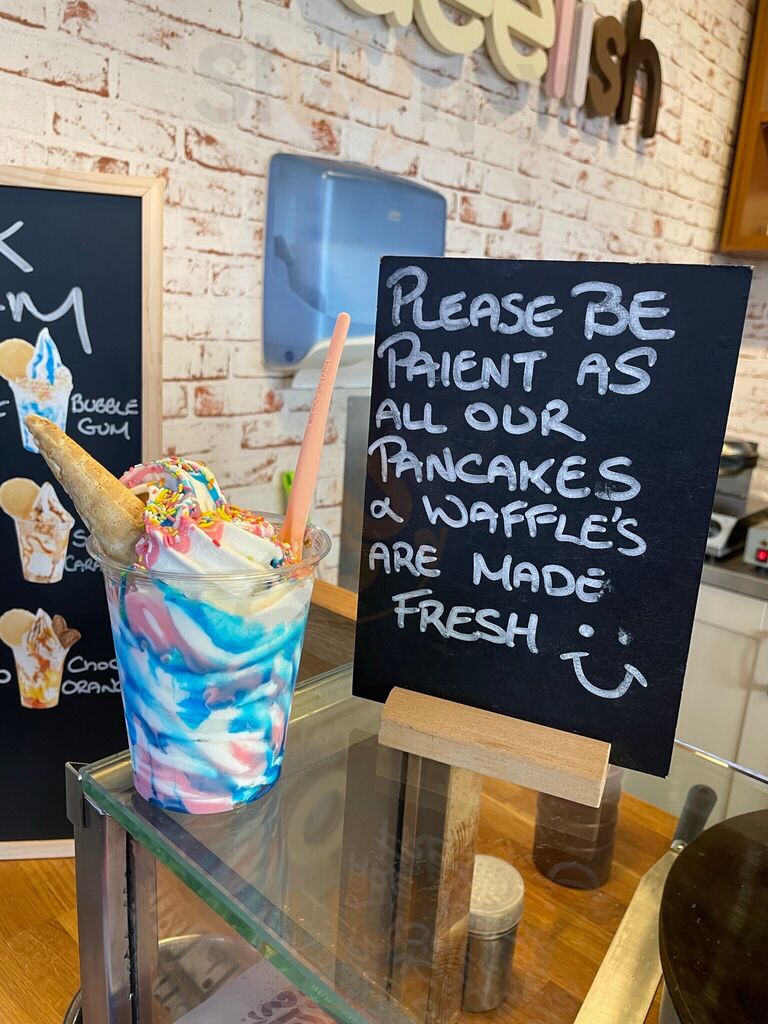 lish
BUBBLE
GUM
PLEASE BE
PAIENT AS
ALL OUR
PANCAKES
& WAFFLE'S
ARE MADE
FRESH